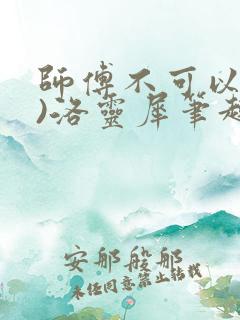 師傅不可以
)洛靈犀筆趣
安那般那
未经同意禁止转载